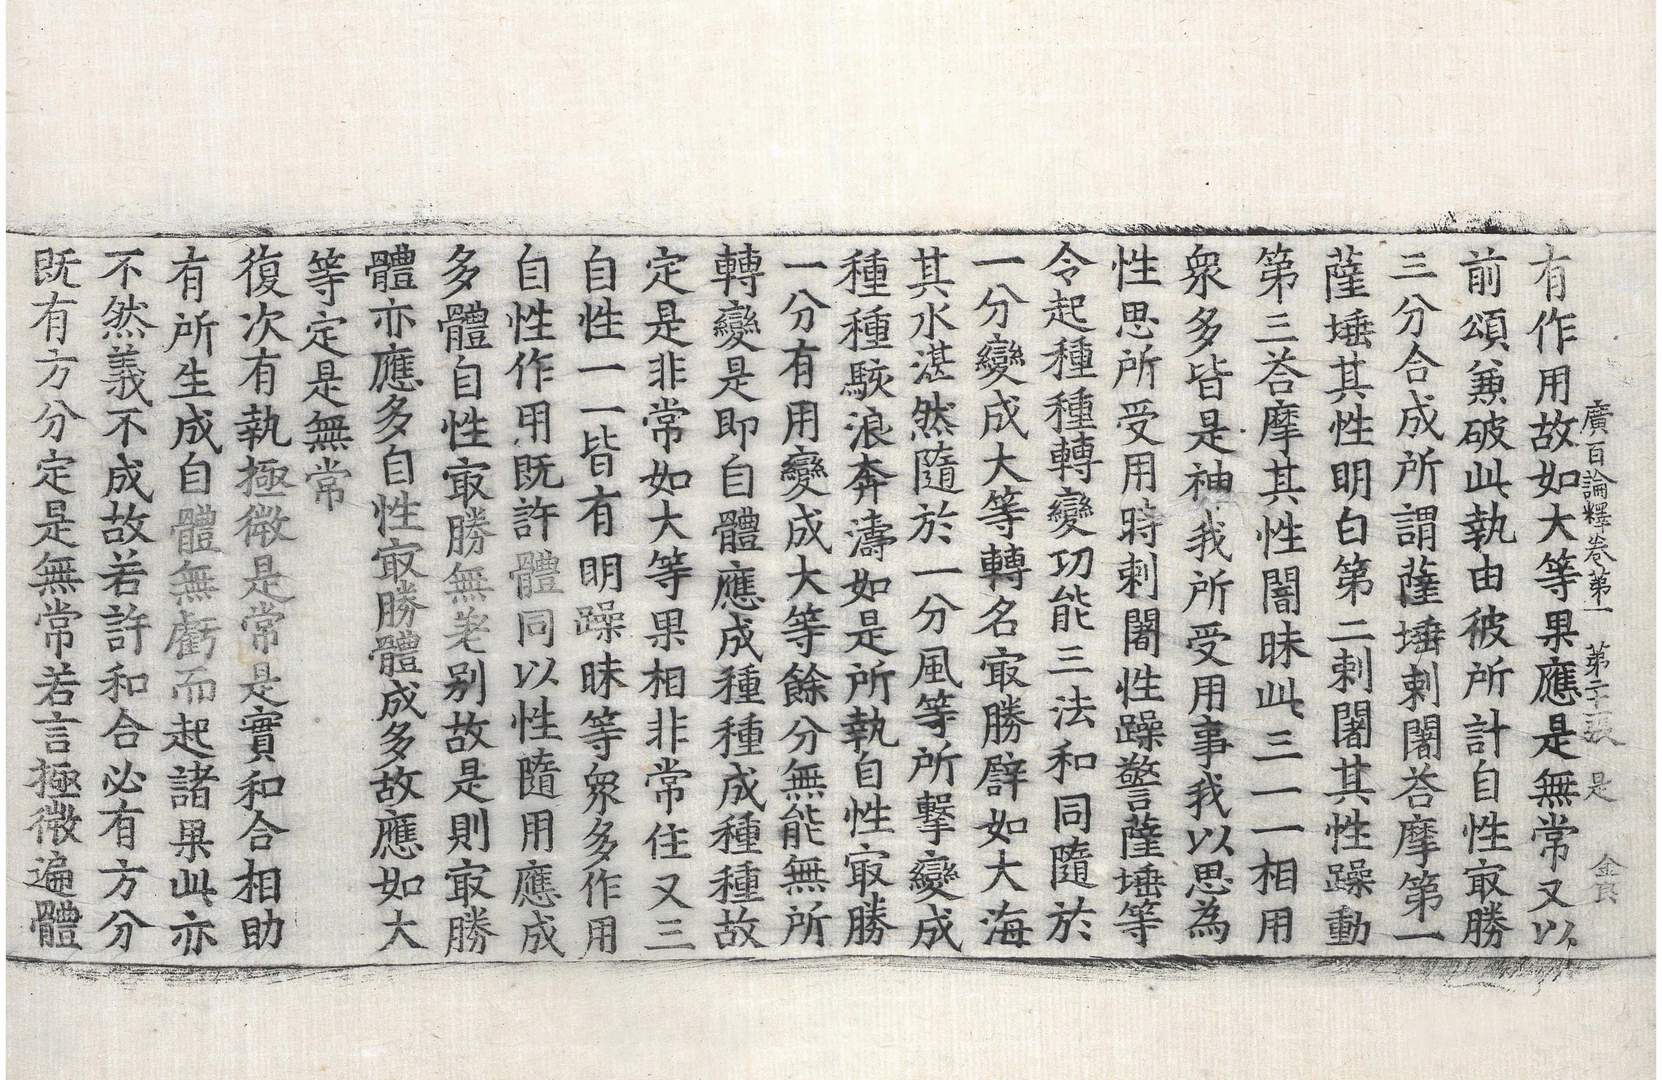 廣百論釋卷第一　第二十張　是　金良
有作用故如大等果應是無常又以
前頌兼破此執由彼所計自性㝡勝
三分合成所謂薩埵剌闍荅摩第一
薩埵其性明白第二剌闍其性躁動
第三荅摩其性闇昧此三一一相用
衆多皆是神我所受用事我以思為
性思所受用時剌闍性躁警薩埵等
令起種種轉變功能三法和同隨於
一分變成大等轉名㝡勝譬如大海
其水湛然隨於一分風等所擊變成
種種駭浪奔濤如是所執自性㝡勝
一分有用變成大等餘分無能無所
轉變是即自體應成種種成種種故
定是非常如大等果相非常住又三
自性一一皆有明躁昧等衆多作用
自性作用既許體同以性隨用應成
多體自性㝡勝無差别故是則㝡勝
體亦應多自性㝡勝體成多故應如大
等定是無常
復次有執極微是常是實和合相助
有所生成自體無虧而起諸果此亦
不然義不成故若許和合必有方分
既有方分定是無常若言極微遍體